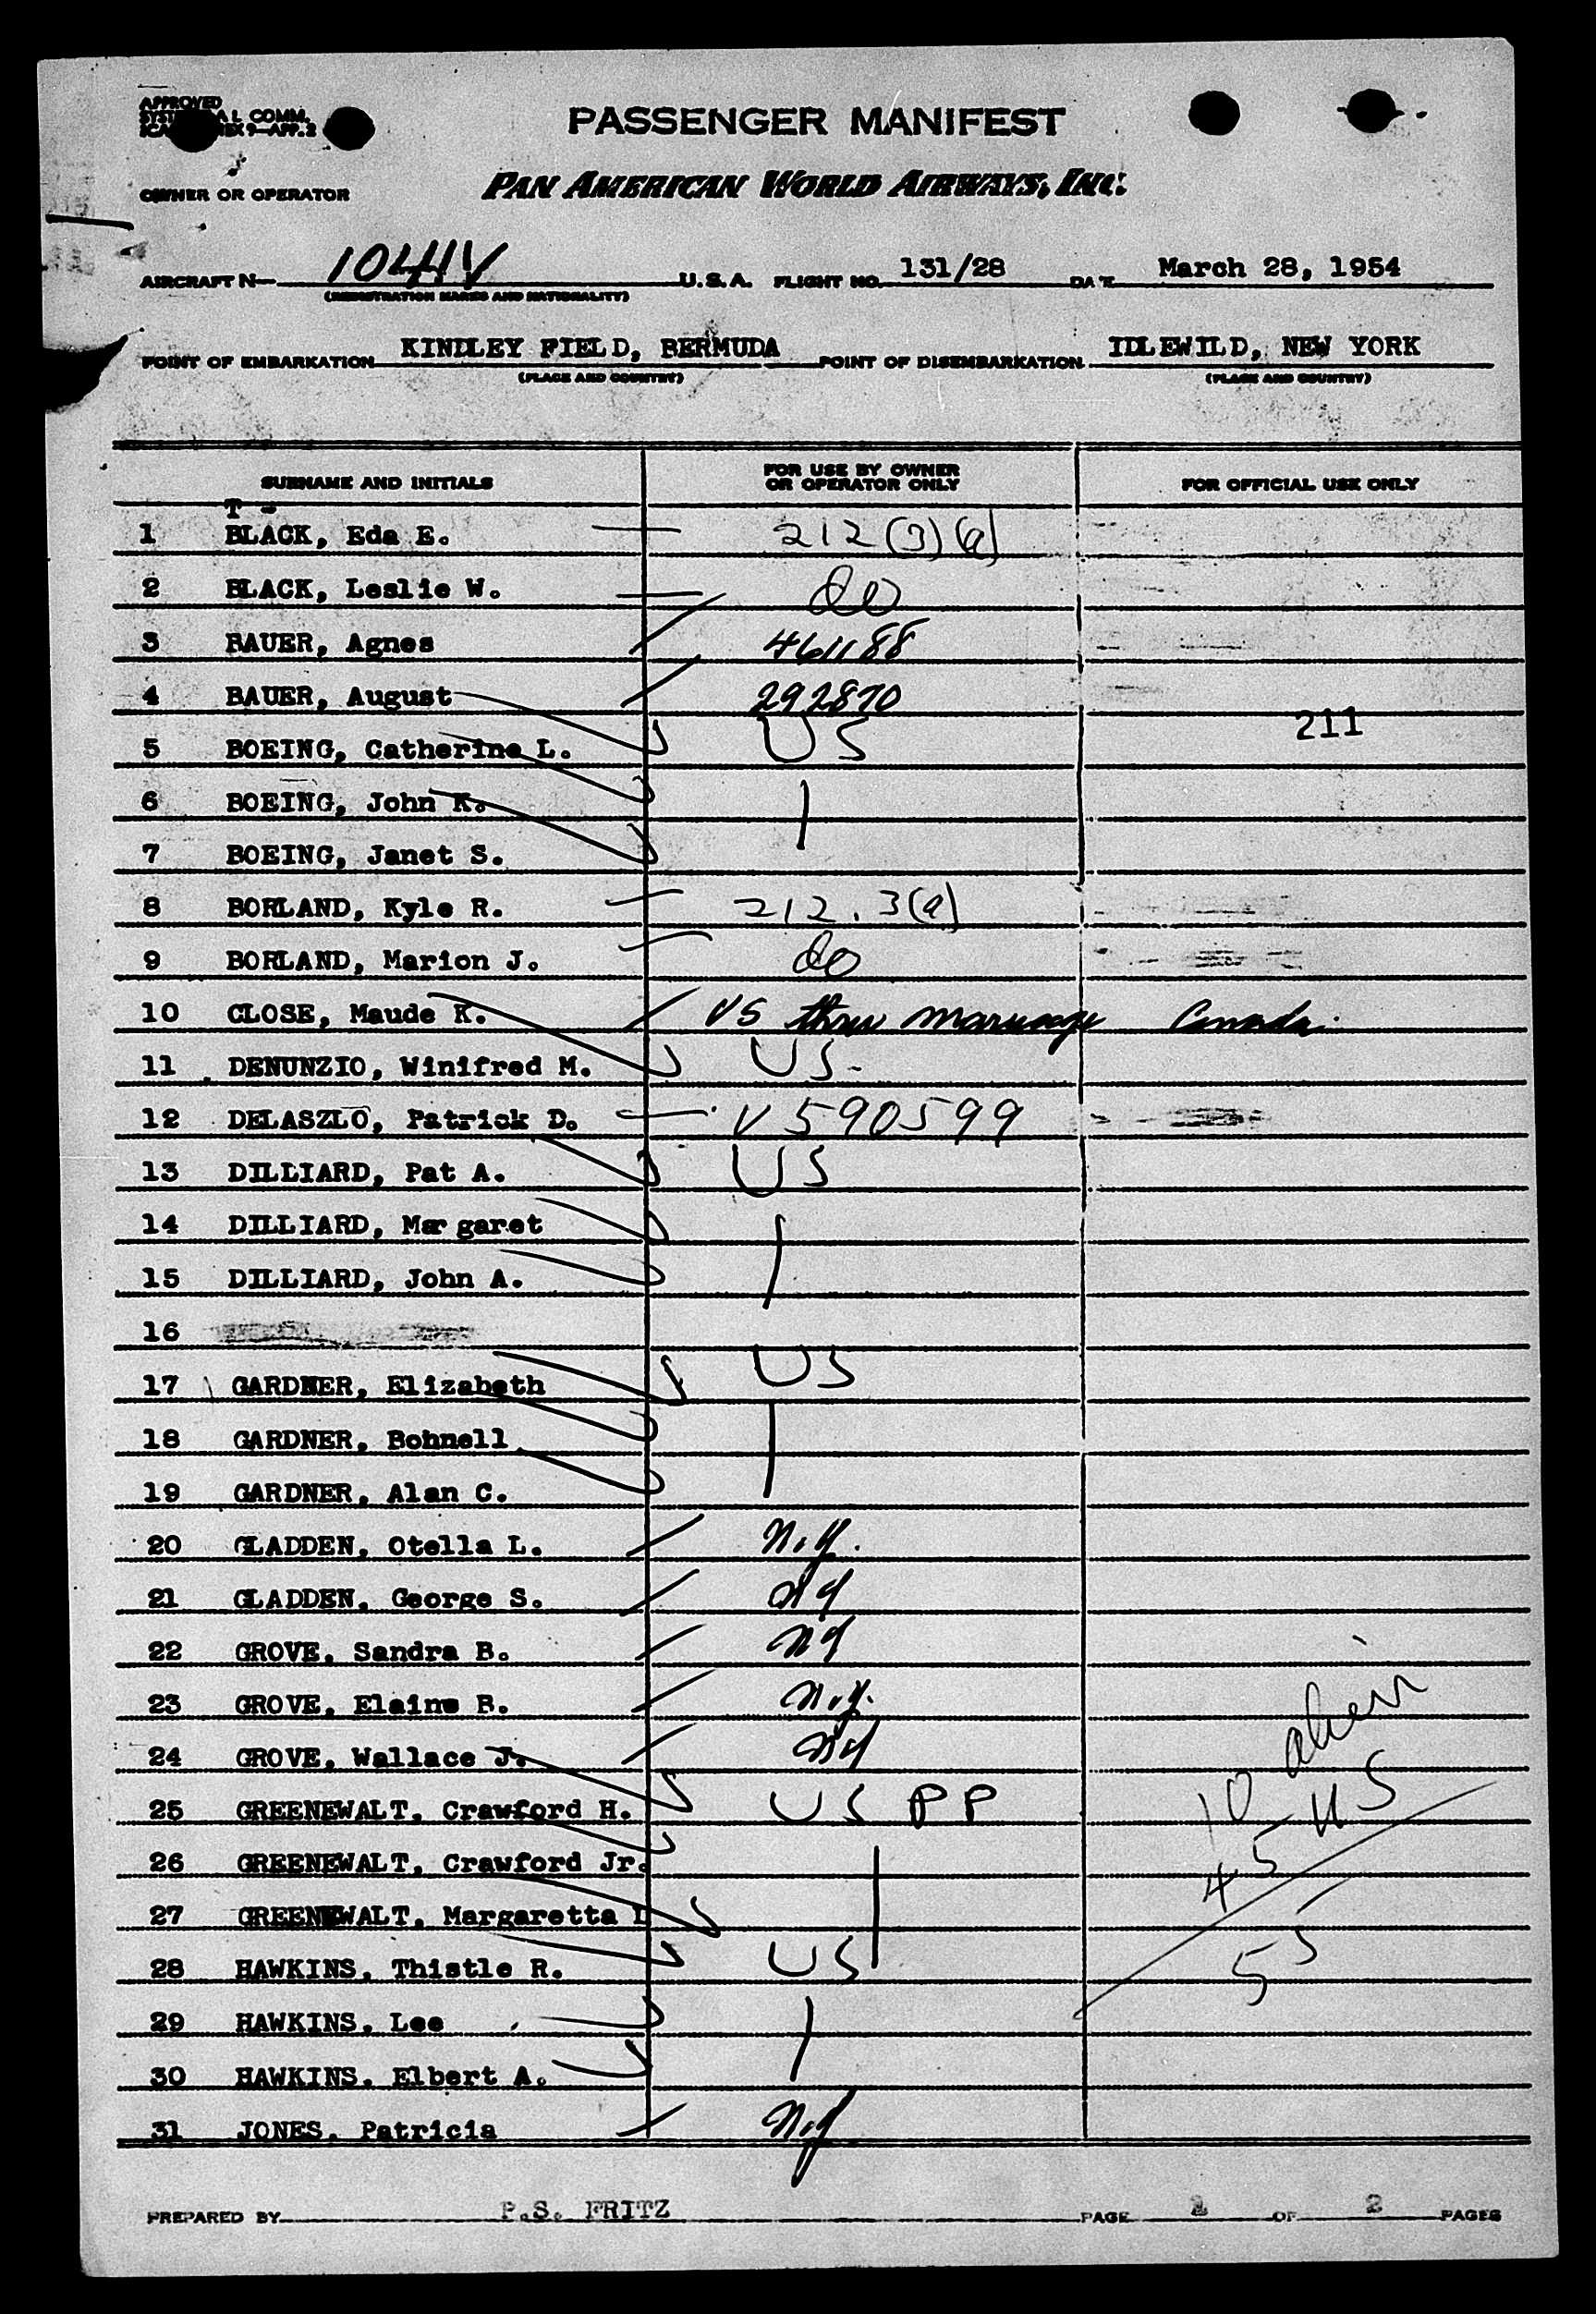 APPROVED
COMM.
PASSENGER MANIFEST
OWNER OR OPERATOR PAN AMERICAN WORLD AIRWAYS, INC.
AIRCRAFT N— 1041V U.S.A. FLIGHT NO. 131/28 DATE March 28, 1954
(REGISTRATION MARKS AND NATIONALITY)
POINT OF EMBARKATION KINDLEY FIELD, BERMUDA POINT OF DISEMBARKATION IDLEWILD, NEW YORK
(PLACE AND COUNTRY) (PLACE AND COUNTRY)
SURNAME AND INITIALS FOR USE BY OWNER OR OPERATOR ONLY FOR OFFICIAL USE ONLY
T -
1 BLACK, Eda E. 212(3)(a)
2 BLACK, Leslie W. do
3 BAUER, Agnes 461188
4 BAUER, August 292870
211
5 BOEING, Catherine L. US
6 BOEING, John K.
7 BOEING, Janet S.
8 BORLAND, Kyle R. 212.3(a)
9 BORLAND, Marion J. do
10 CLOSE, Maude K. VS thru marriage Canada.
11 DENUNZIO, Winifred M. US-
12 DELASZLO, Patrick D. V590599
13 DILLIARD, Pat A. US
14 DILLIARD, Mar garet
15 DILLIARD, John A.
16
17 GARDNER, Elizabeth US
18 GARDNER, Bohnell
19 GARDNER, Alan C.
20 GLADDEN, Otella L. N.Y.
21 GLADDEN, George S. NY
22 GROVE, Sandra B. NY
23 GROVE, Elaine B. N.Y.
24 GROVE, Wallace J. NY
25 GREENEWALT, Crawford H. US PP
10 alien
26 GREENEWALT, Crawford Jr.
45 US
27 GREENEWALT, Margaretta L
28 HAWKINS, Thistle R. US
55
29 HAWKINS, Lee
30 HAWKINS, Elbert A.
31 JONES, Patricia N.Y
PREPARED BY P.S. FRITZ PAGE 1 OF 2 PAGES